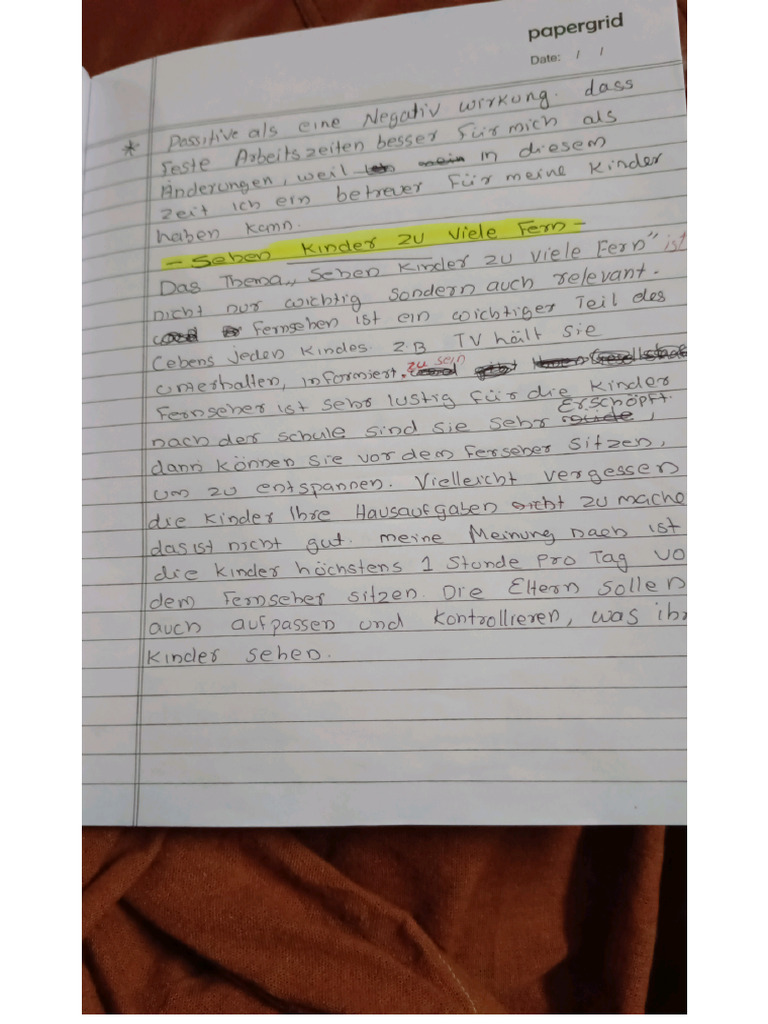 papergrid
Date: / /
* Passitive als eine Negativ wirkung. dass
feste Arbeitszeiten besser für mich als
Änderungen, weil in diesem
zeit ich ein betreuer für meine Kinder
haben kann.
- Sehen Kinder zu viele Fern -
Das Thema „ Sehen Kinder zu viele Fern" ist
nicht nur wichtig sondern auch relevant.
Fernsehen ist ein wichtiger Teil des
Lebens jeden Kindes z.B TV hält sie
unterhalten, informiert. zu sein
Fernseher ist sehr lustig für die Kinder
Erschöpft.
nach der schule sind sie sehr
dann können sie vor dem Ferseher sitzen,
um zu entspannen. Vielleicht vergessen
die Kinder Ihre Hausaufgaben zu mache
das ist nicht gut. meine Meinung nach ist
die kinder höchstens 1 Stunde pro Tag vo
dem Fernseher sitzen. Die Eltern sollen
auch aufpassen und kontrollieren, was ihr
Kinder sehen.